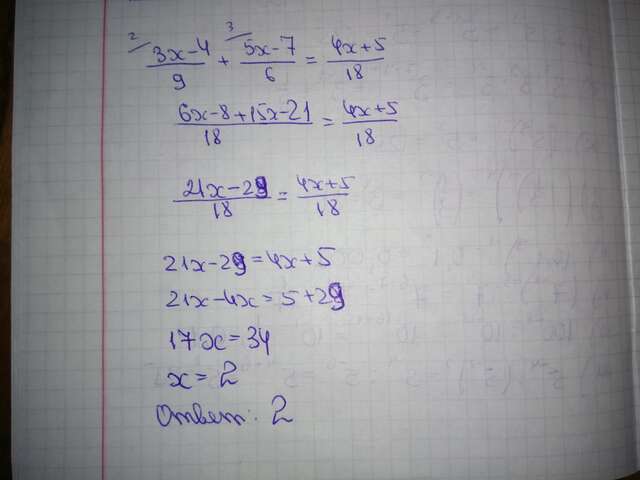 ²/ (3x-4)/9 + ³/ (5x-7)/6 = (4x+5)/18
(6x-8+15x-21)/18 = (4x+5)/18
(21x-29)/18 = (4x+5)/18
21x-29=4x+5
21x-4x=5+29
17x=34
x=2
Ответ: 2